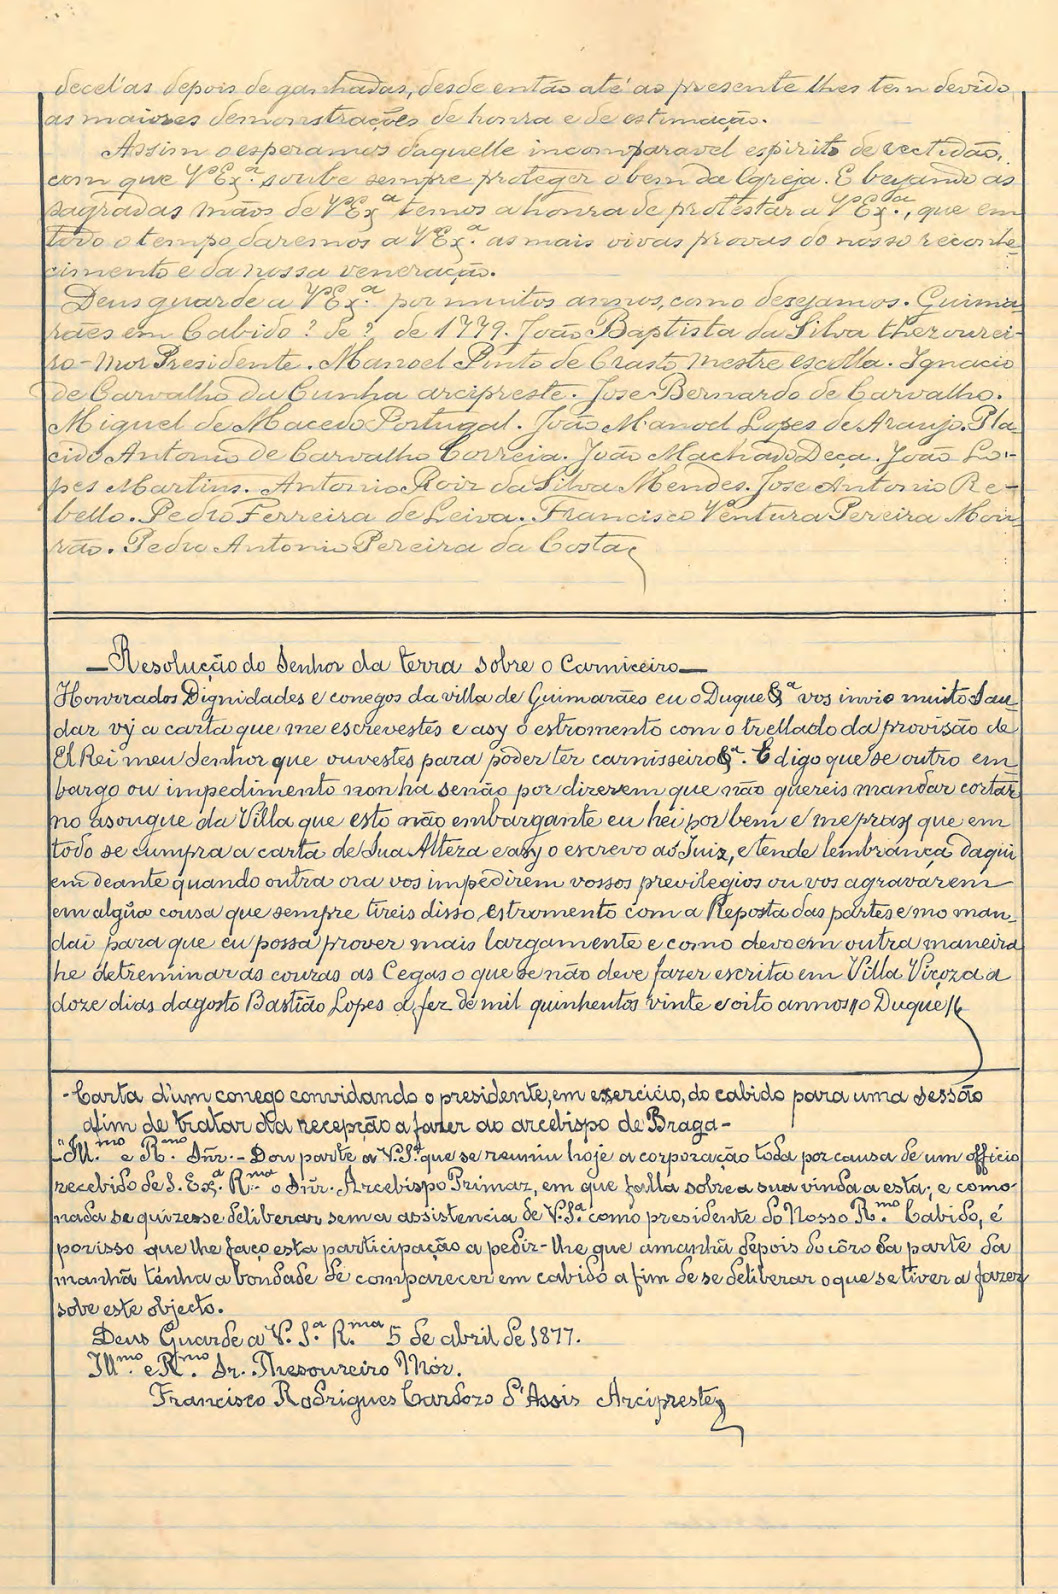 decel'as depois de ganhadas, desde então até ao presente lhes tem devido
as maiores demonstrações de honra e de estimação.
Assim o esperamos daquelle incomparavel espirito de rectidão,
com que V.Ex.ª soube sempre proteger o bem da Igreja. E beijando as
sagradas mãos de V.Ex.ª temos a honra de protestar a V.Ex.ª, que em
todo o tempo daremos a V.Ex.ª as mais vivas provas do nosso reconhe-
cimento e da nossa veneração.
Deus guarde a V.Ex.ª por muitos annos, como desejamos. Guima-
rães em Cabido ? de ? de 1779. João Baptista da Silva thezourei-
ro-mor Presidente. Manoel Pinto de Crasto mestre escolla. Ignacio
de Carvalho da Cunha arcipreste. Jose Bernardo de Carvalho.
Miguel de Macedo Portugal. João Manoel Lopes de Araujo. Pla-
cido Antonio de Carvalho Correia. João Machado Deça. João Lo-
pes Martins. Antonio Roiz da Silva Mendes. Jose Antonio Re-
bello. Pedro Ferreira de Leiva. Francisco Ventura Pereira Mou-
rão. Pedro Antonio Pereira da Costa
— Resolução do Senhor da terra sobre o Carniceiro —
Honrrados Dignidades e conegos da villa de Guimarães eu o Duque &ª vos invio muito Sau
dar vy a carta que me escrevestes e asy o estromento com o trellado da provisão de
El Rei meu Senhor que ouvestes para poder ter carnisseiro &ª. E digo que se outro em
bargo ou impedimento non ha senão por direrem que não quereis mandar cortar
no asougue da Villa que esto não embargante eu hei por bem e me praz que em
todo se cumpra a carta de Sua Alteza e asy o escrevo ao Juiz, e tende lembrança daqui
em deante quando outra ora vos impedirem vossos previlegios ou vos agravárem
em algũa cousa que sempre tireis disso estromento com a Reposta das partes e mo man-
dai para que eu possa prover mais largamente e como devo em outra maneira
he detreminar as couzas as Cegas o que se não deve fazer escrita em Villa Viçoza a
doze dias dagosto Bastião Lopes a fez de mil quinhentos vinte e oito annos // o Duque //
- Carta d'um conego convidando o presidente, em exercicio, do cabido para uma sessão
afim de tratar da recepção a fazer ao arcebispo de Braga -
"Ill.mo e R.mo Snr. - Dou parte a V.S.ª que se reuniu hoje a corporação toda por causa de um officio
recebido de S. Ex.ª R.ma o Snr. Arcebispo Primaz, em que falla sobre a sua vinda a esta; e como
nada se quizesse deliberar sem a assistencia de V.S.ª como presidente do Nosso R.mo Cabido, é
porisso que lhe faço esta participação a pedir-lhe que amanhã depois do côro da parte da
manhã tenha a bondade de comparecer em cabido a fim de se deliberar o que se tiver a fazer
sobe este objecto.
Deus Guarde a V. S.ª R.ma 5 de abril de 1877.
Ill.mo e R.mo Sr. Thesoureiro Mór.
Francisco Rodrigues Cardozo d'Assis Arcipreste